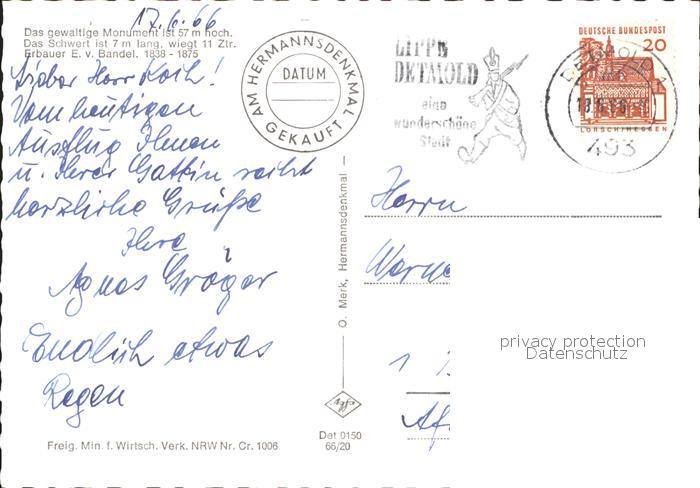 17.6.66
Das gewaltige Monument ist 57 m hoch.
Das Schwert ist 7 m lang, wiegt 11 Ztr.
Erbauer E. v. Bandel. 1838 - 1875
Lieber Herr Koch!
Vom heutigen
Ausflug Ihnen
u. Ihrer Gattin recht
herzliche Grüße
Ihre
Agnes Gröger
Endlich etwas
Regen
Freig. Min. f. Wirtsch. Verk. NRW Nr. Cr. 1006
AM HERMANNSDENKMAL
DATUM
GEKAUFT
O. Merk, Hermannsdenkmal
Agfa
Det 0150
66/20
LIPPE
DETMOLD
eine
wunderschöne
Stadt
DETMOLD
18.6.66
493
DEUTSCHE BUNDESPOST
20
LORSCH/HESSEN
Herrn
1
privacy protection
Datenschutz